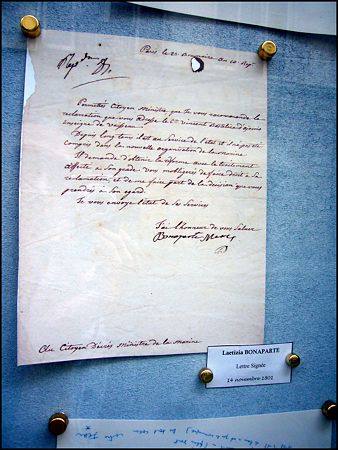 Paris le 23 Brumaire an 10
Permettez Citoyen Ministre, que je vous recommande la
reclamation que vous adresse le Cen vincent
enseigne de vaisseau.
Depuis long tems il est au service de l'état et n'a pas été
compris dans la nouvelle organisation de la marine
Il demande d'obtenir la réforme avec le traitement
affecté à son grade. vous m'obligerez de faire droit à sa
reclamation, et de me faire part de la decision que vous
prendrés à son egard.
Je vous envoye l'état de ses services
J'ai l'honneur de vous saluer
Bonaparte Mere
Au Citoyen Décrès Ministre de la marine
Laetizia BONAPARTE
Lettre Signée
14 novembre 1801